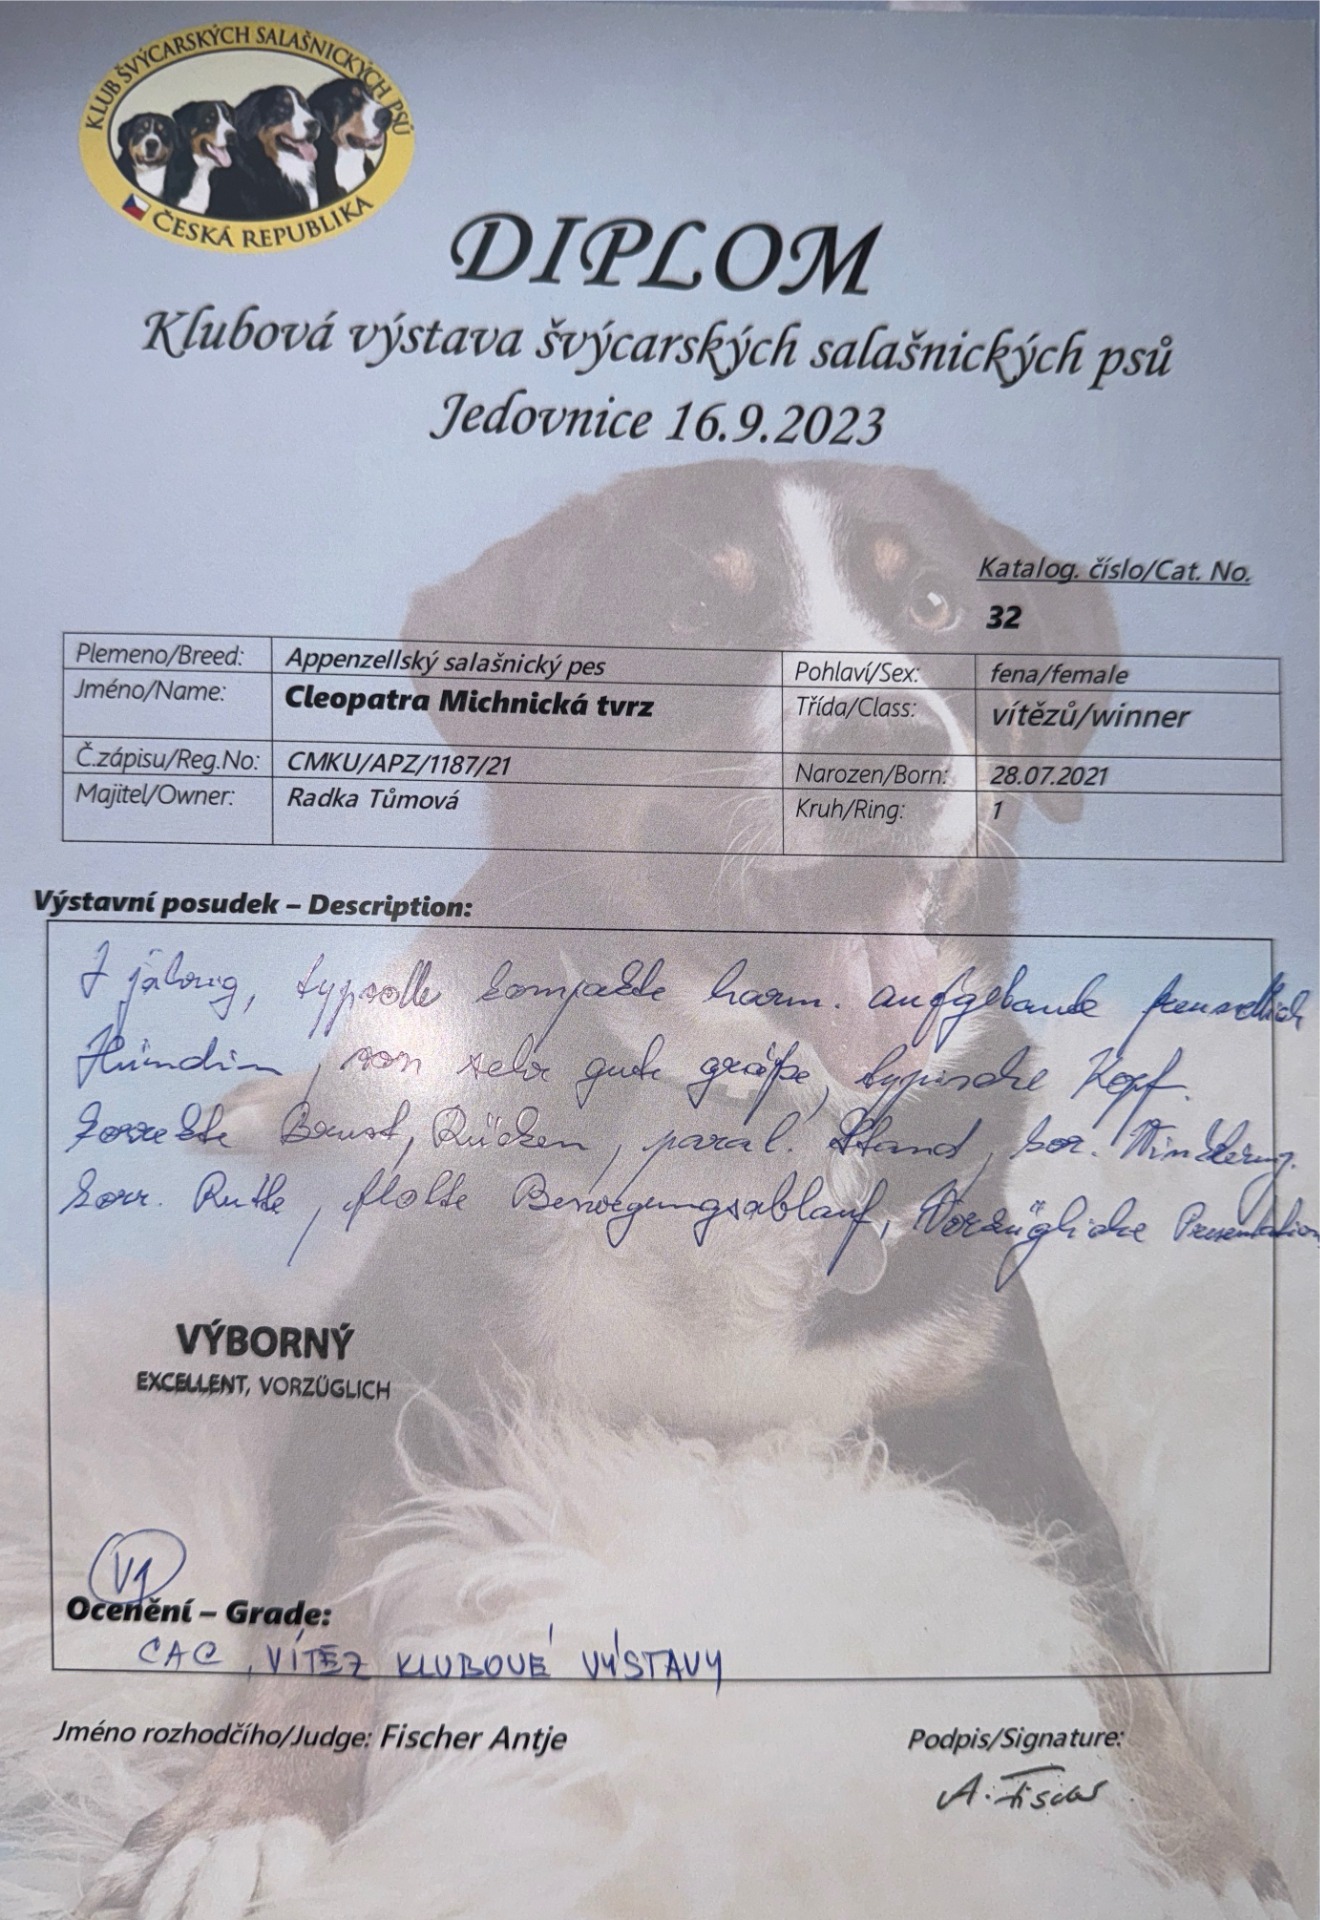 KLUB ŠVÝCARSKÝCH SALAŠNICKÝCH PSŮ
ČESKÁ REPUBLIKA
DIPLOM
Klubová výstava švýcarských salašnických psů
Jedovnice 16.9.2023
Katalog. číslo/Cat. No.
32
Plemeno/Breed: Appenzellský salašnický pes Pohlaví/Sex: fena/female
Jméno/Name: Cleopatra Michnická tvrz Třída/Class: vítězů/winner
Č.zápisu/Reg.No: CMKU/APZ/1187/21 Narozen/Born: 28.07.2021
Majitel/Owner: Radka Tůmová Kruh/Ring: 1
Výstavní posudek – Description:
jährig, typvolle kompakte harm. aufgebaute
Hündin, von sehr gute größe, typische Kopf.
korrekte Brust, Rücken, paral. Stand, kor. Winkelung.
korr. Rute, flotte Bewegungsablauf, Vorzügliche Presentation
VÝBORNÝ
EXCELLENT, VORZÜGLICH
V1
Ocenění – Grade:
CAC, VÍTĚZ KLUBOVÉ VÝSTAVY
Jméno rozhodčího/Judge: Fischer Antje Podpis/Signature:
A. Fischer